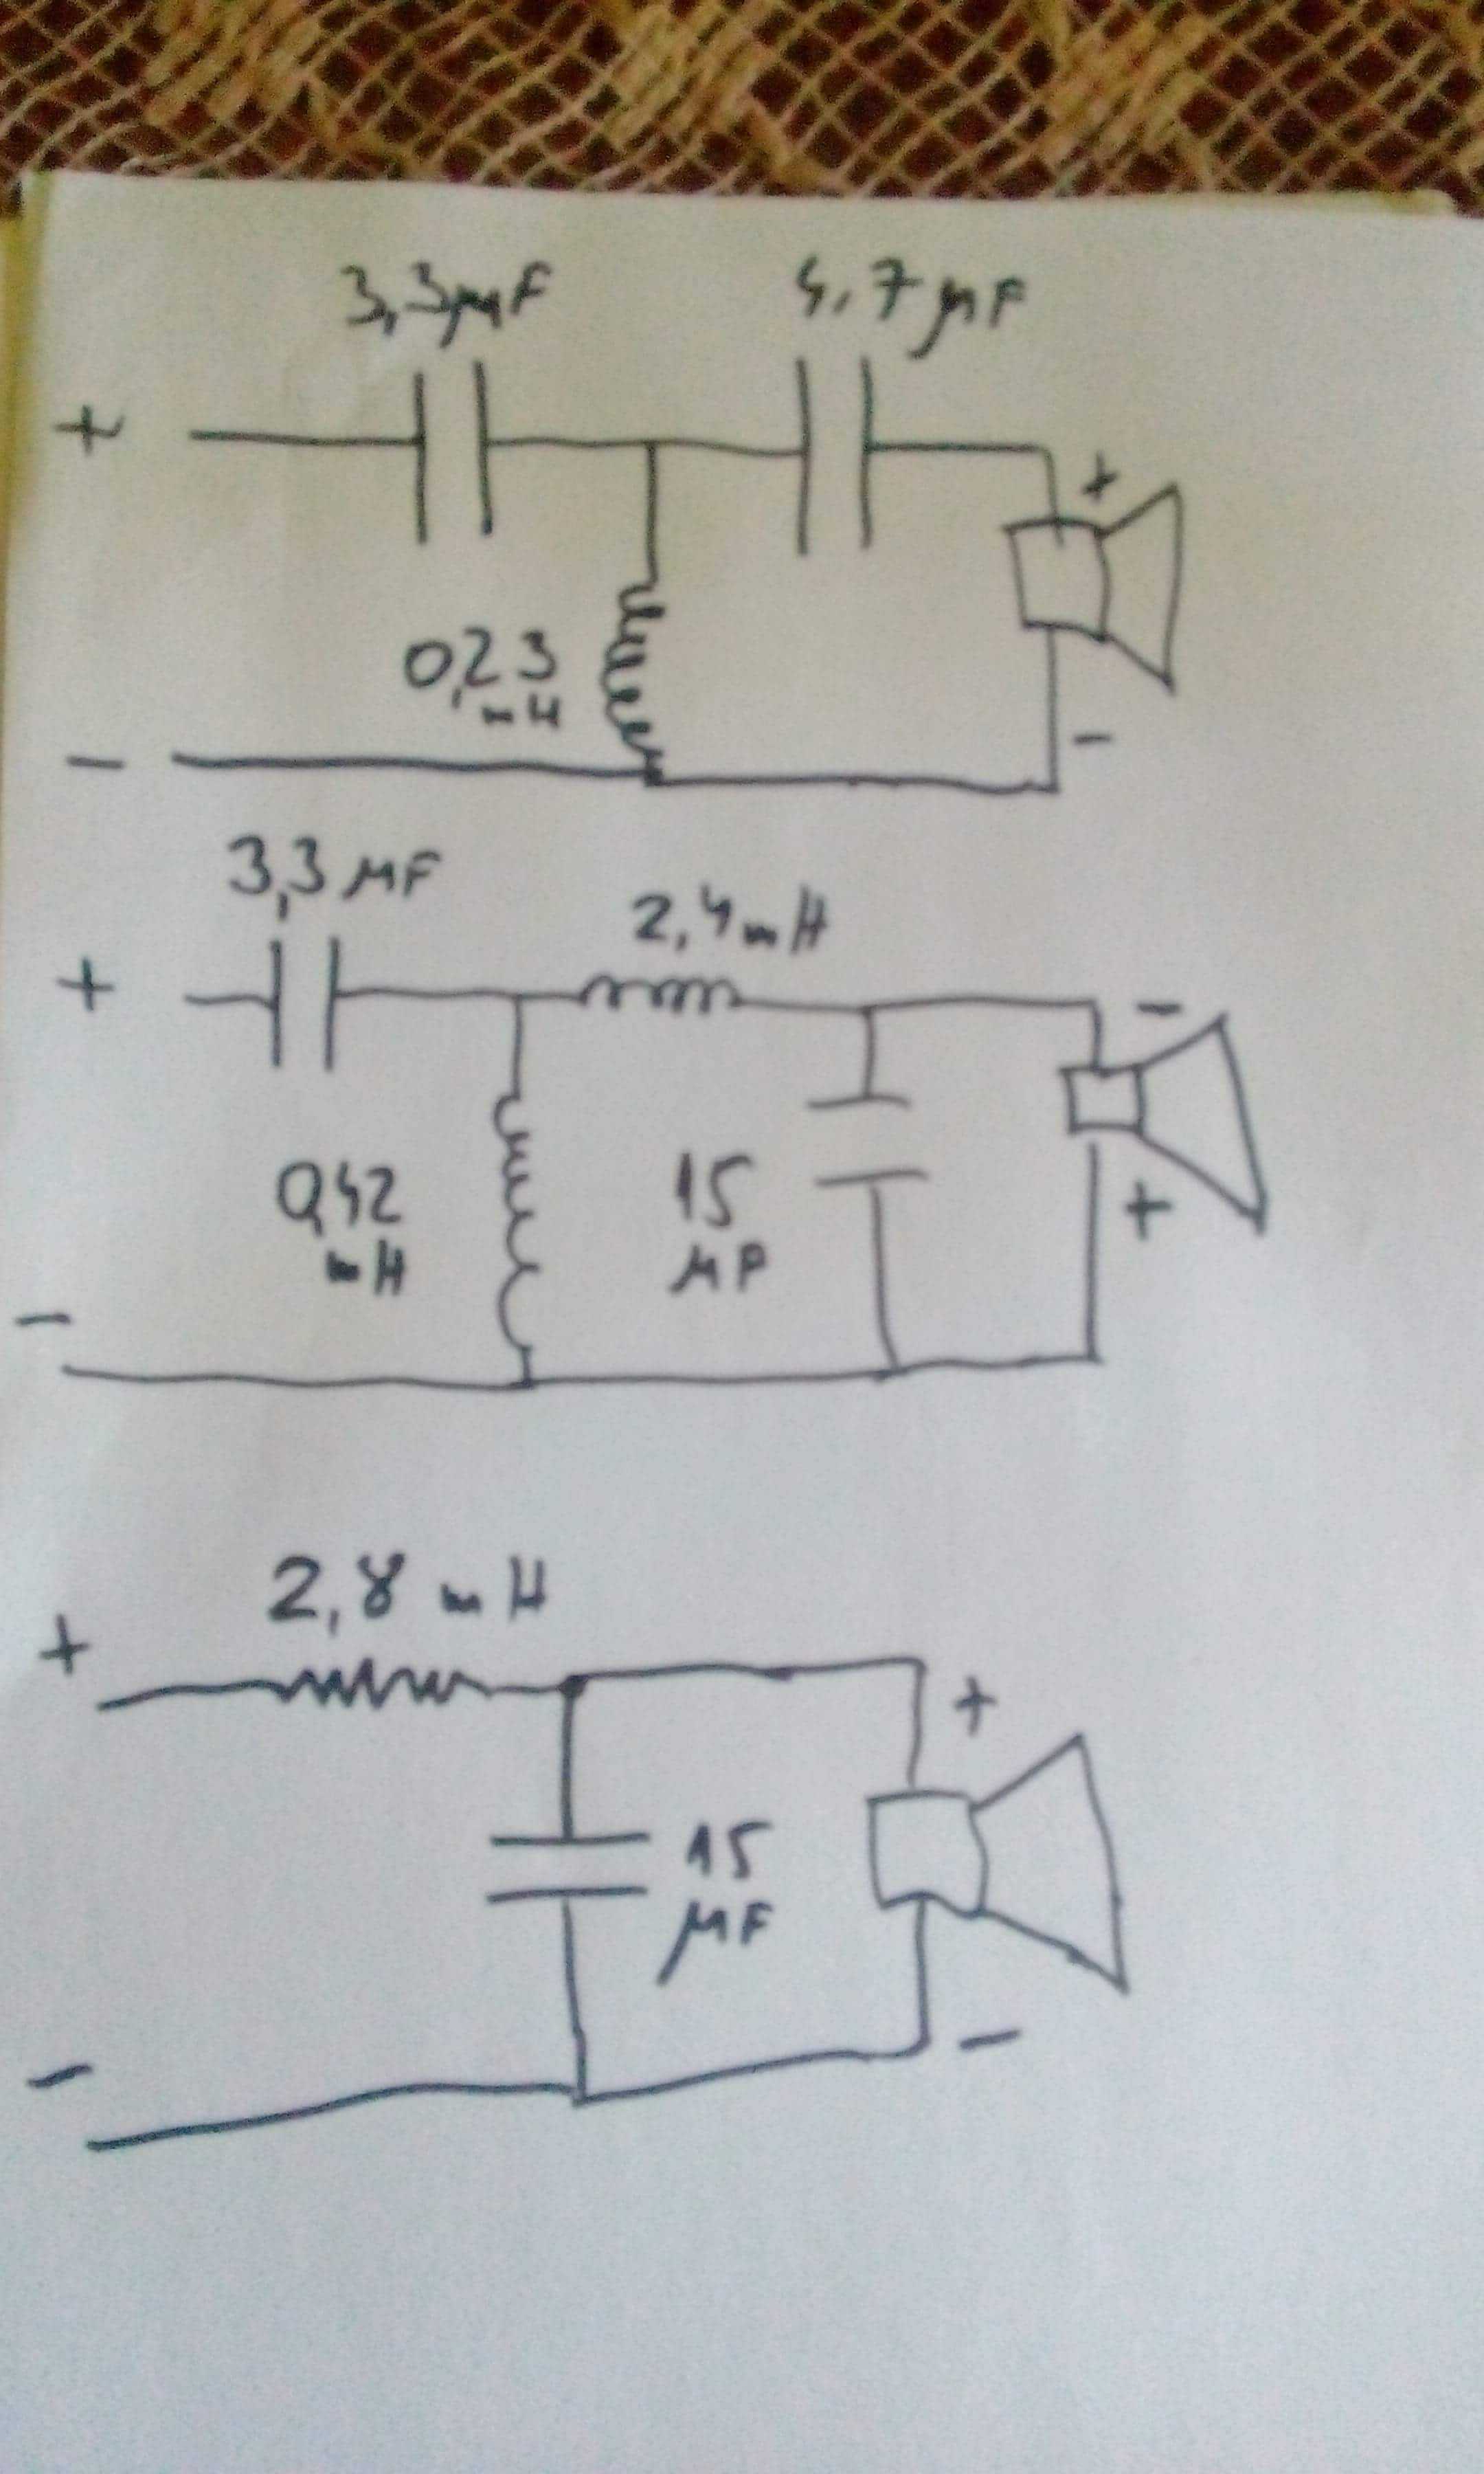 3,3µF 4,7µF
+
+
0,23
mH
-
-
3,3µF
2,4mH
+
-
0,42
mH
15
µF
+
-
2,8 mH
+
+
15
µF
-
-